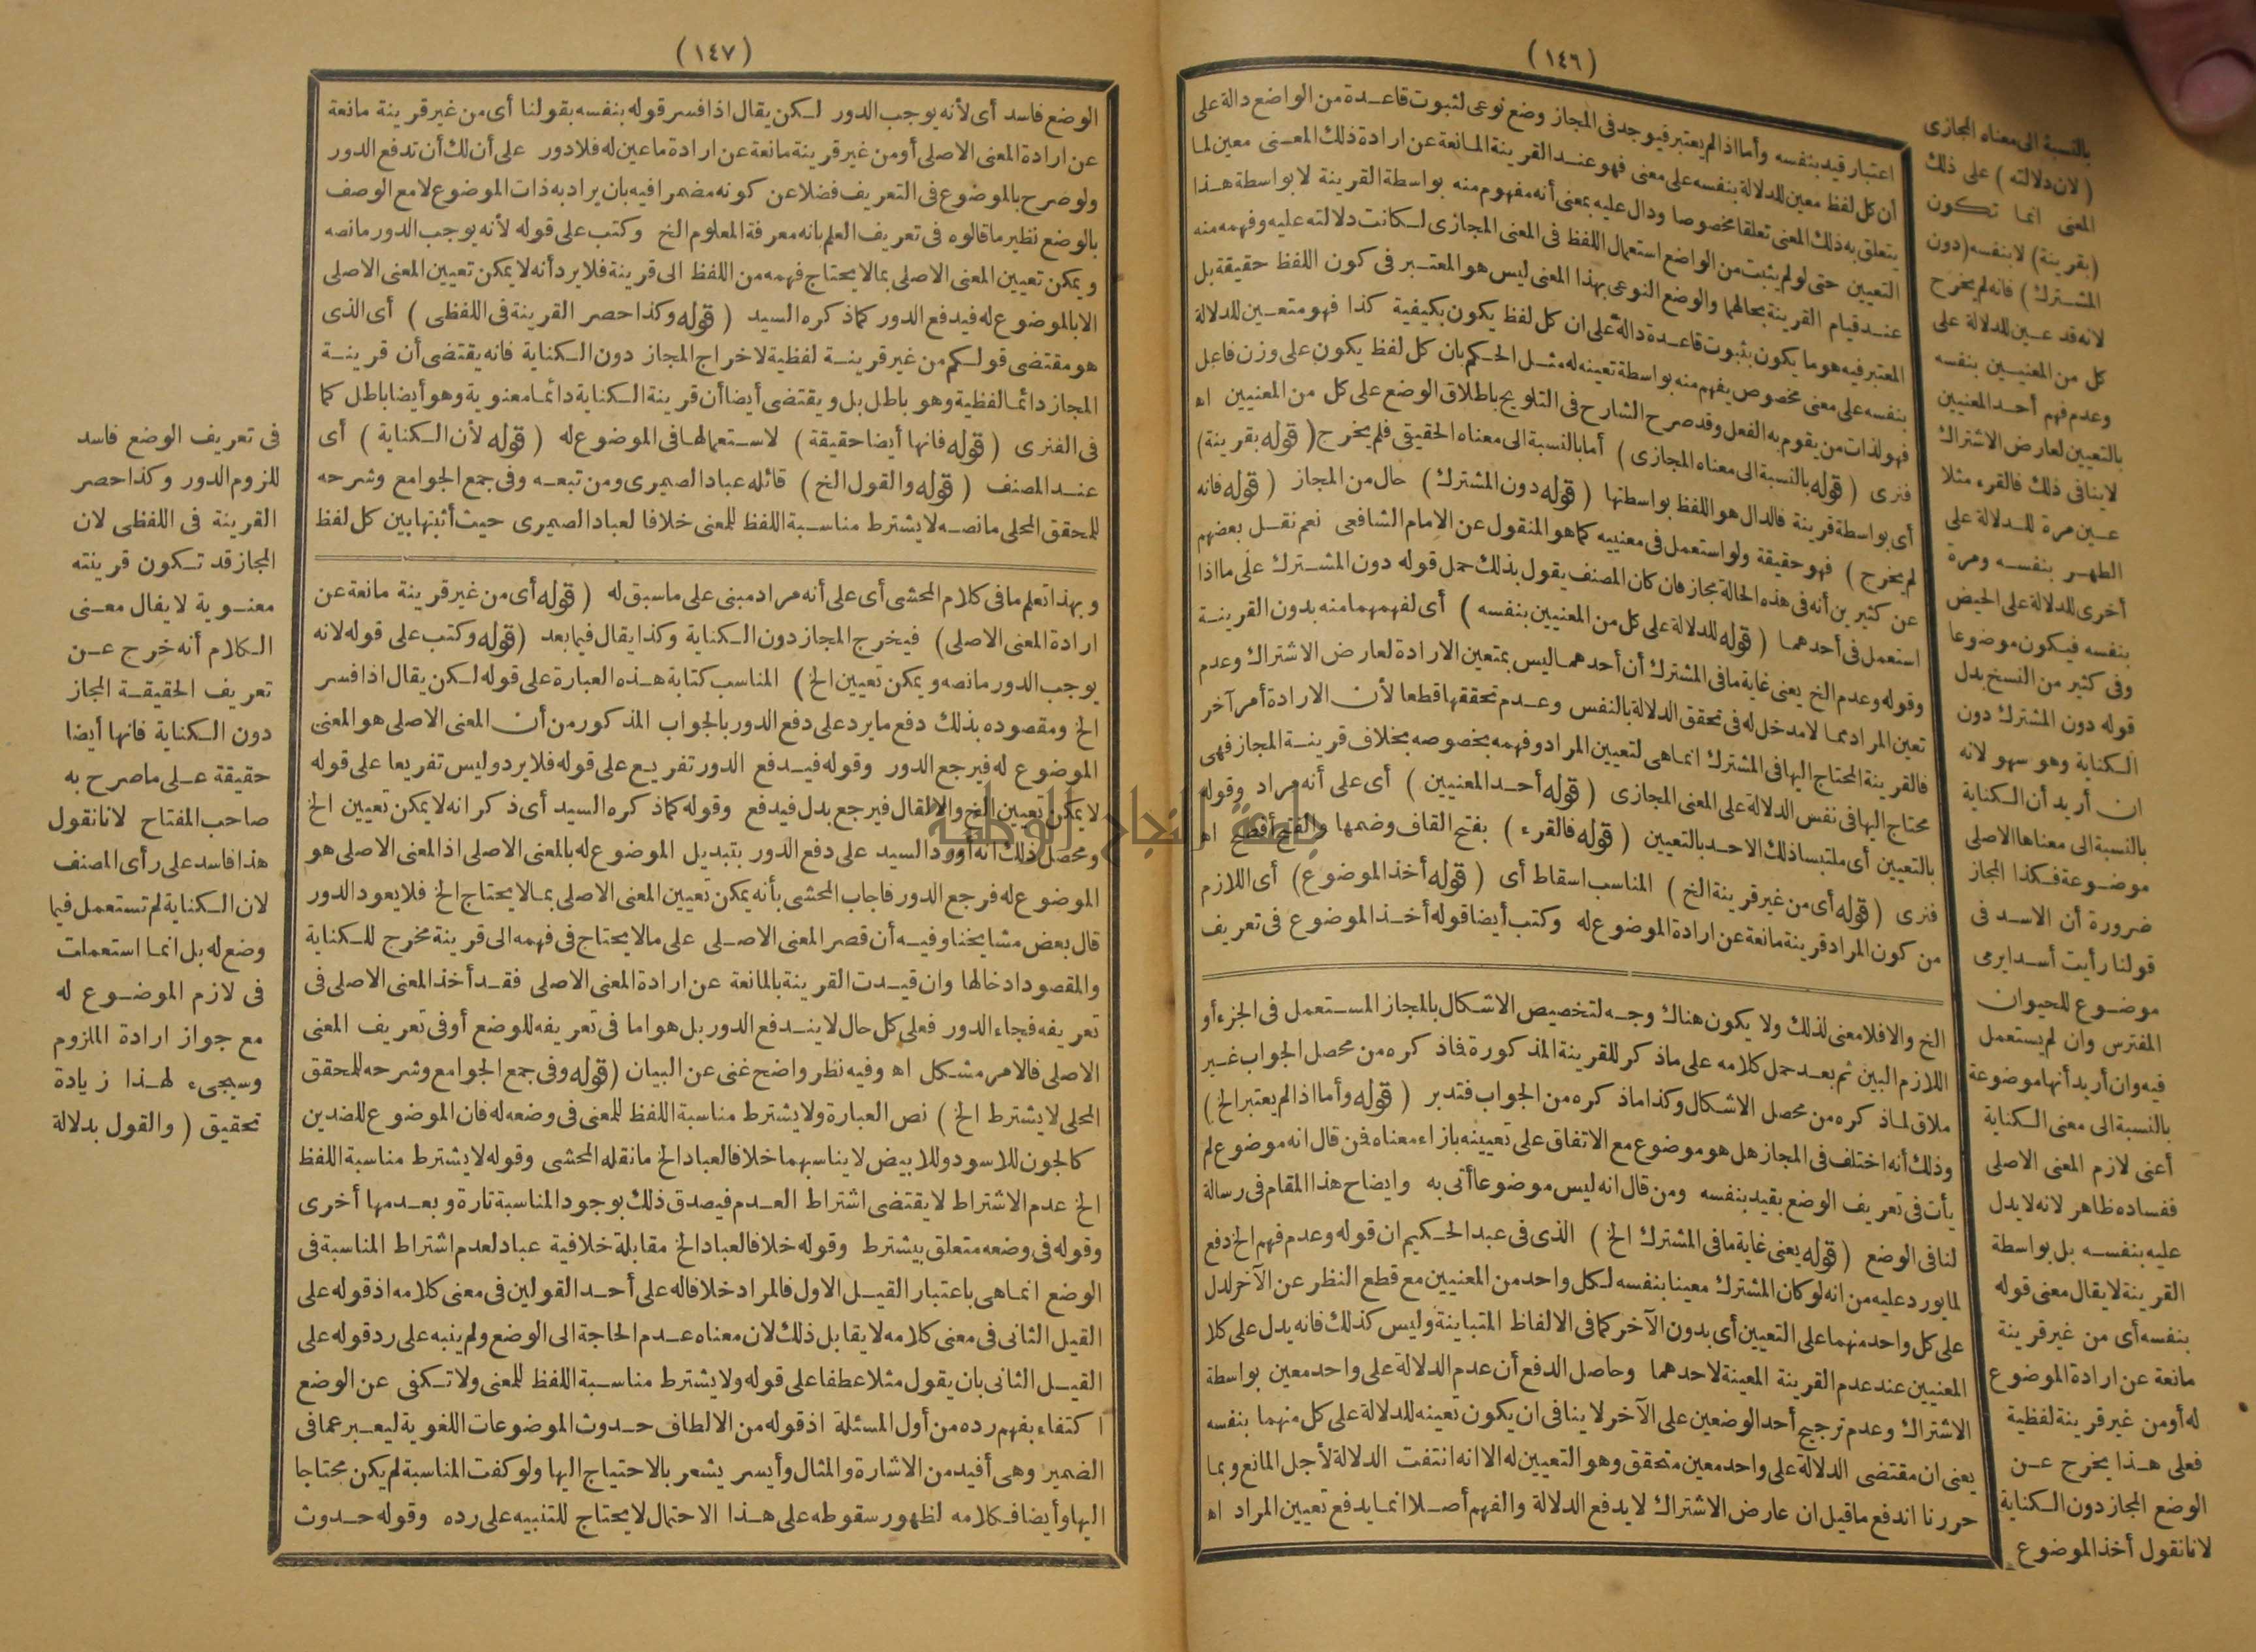 (١٤٦)
اعتبار قيد بنفسه وأما اذا لم يعتبر فيوجد فى المجاز وضع نوعى لثبوت قاعدة من الواضع دالة على
أن كل لفظ معين للدلالة بنفسه على معنى فهو عند القرينة المانعة عن ارادة ذلك المعنى معين لما
يتعلق به ذلك المعنى تعلقا مخصوصا ودال عليه بمعنى أنه مفهوم منه بواسطة القرينة لا بواسطة هذا
التعيين حتى لو لم يثبت من الواضع استعمال اللفظ فى المعنى المجازى لكانت دلالته عليه وفهمه منه
عند قيام القرينة بحالها والوضع النوعى بهذا المعنى ليس هو المعتبر فى كون اللفظ حقيقة بل
المعتبر فيه هو ما يكون بثبوت قاعدة دالة على ان كل لفظ يكون بكيفية كذا فهو متعين للدلالة
بنفسه على معنى مخصوص يفهم منه بواسطة تعينه له مثل الحكم بان كل لفظ يكون على وزن فاعل
فهو لذات من يقوم به الفعل وقد صرح الشارح فى التلويح باطلاق الوضع على كل من المعنيين اه
فنرى (قوله بالنسبة الى معناه المجازى) أما بالنسبة الى معناه الحقيقى فلم يخرج (قوله بقرينة)
أى بواسطة قرينة فالدال هو اللفظ بواسطتها (قوله دون المشترك) حال من المجاز (قوله فانه
لم يخرج) فهو حقيقة ولو استعمل فى معنييه كما هو المنقول عن الامام الشافعى نعم نقل بعضهم
عن كثيرين أنه فى هذه الحالة مجاز فان كان المصنف يقول بذلك حمل قوله دون المشترك على ما اذا
استعمل فى أحدهما (قوله للدلالة على كل من المعنيين بنفسه) أى لفهمهما منه بدون القرينة
وقوله وعدم الخ يعنى غاية ما فى المشترك أن أحدهما ليس بمتعين الارادة لعارض الاشتراك وعدم
تعين المراد مما لا مدخل له فى تحقق الدلالة بالنفس وعدم تحققها قطعا لأن الارادة أمر آخر
فالقرينة المحتاج اليها فى المشترك انما هى لتعيين المراد وفهمه بخصوصه بخلاف قرينة المجاز فهى
محتاج اليها فى نفس الدلالة على المعنى المجازى (قوله أحد المعنيين) أى على أنه مراد وقوله
بالتعيين أى ملتبسا ذلك الاحد بالتعيين (قوله فالقرء) بفتح القاف وضمها والفتح أفصح اه
فنرى (قوله أى من غير قرينة الخ) المناسب اسقاط أى (قوله أخذ الموضوع) أى اللازم
من كون المراد قرينة مانعة عن ارادة الموضوع له وكتب أيضا قوله أخذ الموضوع فى تعريف
الخ والا فلا معنى لذلك ولا يكون هناك وجه لتخصيص الاشكال بالمجاز المستعمل فى الجزء أو
اللازم البين ثم بعد حمل كلامه على ما ذكر للقرينة المذكورة فاذكره من محصل الجواب غير
ملاق لما ذكره من محصل الاشكال وكذا ما ذكره من الجواب فتدبر (قوله وأما اذا لم يعتبر الخ)
وذلك أنه اختلف فى المجاز هل هو موضوع مع الاتفاق على تعيينه بازاء معناه فمن قال انه موضوع لم
يأت فى تعريف الوضع بقيد بنفسه ومن قال انه ليس موضوعا أتى به وايضاح هذا المقام فى رسالة
لنا فى الوضع (قوله يعنى غاية ما فى المشترك الخ) الذى فى عبد الحكيم ان قوله وعدم فهم الخ دفع
لما يورد عليه من انه لو كان المشترك معينا بنفسه لكل واحد من المعنيين مع قطع النظر عن الآخر لدل
على كل واحد منهما على التعيين أى بدون الآخر كما فى الالفاظ المتباينة وليس كذلك فانه يدل على كلا
المعنيين عند عدم القرينة المعينة لاحدهما وحاصل الدفع أن عدم الدلالة على واحد معين بواسطة
الاشتراك وعدم ترجيح أحد الوضعين على الآخر لا ينافى ان يكون تعينه للدلالة على كل منهما بنفسه
يعنى ان مقتضى الدلالة على واحد معين متحقق وهو التعيين له الا انه انتفت الدلالة لأجل المانع وبما
حررنا اندفع ما قيل ان عارض الاشتراك لا يدفع الدلالة والفهم أصلا انما يدفع تعيين المراد اه
بالنسبة الى معناه المجازى
(لان دلالته) على ذلك
المعنى انما تكون
(بقرينة) لا بنفسه (دون
المشترك) فانه لم يخرج
لانه قد عين للدلالة على
كل من المعنيين بنفسه
وعدم فهم أحد المعنيين
بالتعيين لعارض الاشتراك
لا ينافى ذلك فالقرء مثلا
عين مرة للدلالة على
الطهر بنفسه ومرة
أخرى للدلالة على الحيض
بنفسه فيكون موضوعا
وفى كثير من النسخ بدل
قوله دون المشترك دون
الكناية وهو سهو لانه
ان أريد أن الكناية
بالنسبة الى معناها الاصلى
موضوعة فكذا المجاز
ضرورة أن الاسد فى
قولنا رأيت أسدا يرمى
موضوع للحيوان
المفترس وان لم يستعمل
فيه وان أريد أنها موضوعة
بالنسبة الى معنى الكناية
أعنى لازم المعنى الاصلى
ففساده ظاهر لانه لا يدل
عليه بنفسه بل بواسطة
القرينة لا يقال معنى قوله
بنفسه أى من غير قرينة
مانعة عن ارادة الموضوع
له أو من غير قرينة لفظية
فعلى هذا يخرج عن
الوضع المجاز دون الكناية
لانا نقول أخذ الموضوع
(١٤٧)
الوضع فاسد أى لأنه يوجب الدور لكن يقال اذا فسر قوله بنفسه بقولنا أى من غير قرينة مانعة
عن ارادة المعنى الاصلى أو من غير قرينة مانعة عن ارادة ما عين له فلا دور على أن لك أن تدفع الدور
ولو صرح بالموضوع فى التعريف فضلا عن كونه مضمرا فيه بان يراد به ذات الموضوع لا مع الوصف
بالوضع نظير ما قالوه فى تعريف العلم بانه معرفة المعلوم الخ وكتب على قوله لأنه يوجب الدور ما نصه
ويمكن تعيين المعنى الاصلى بما لا يحتاج فهمه من اللفظ الى قرينة فلا يرد أنه لا يمكن تعيين المعنى الاصلى
الا بالموضوع له فيدفع الدور كما ذكره السيد (قوله وكذا حصر القرينة فى اللفظى) أى الذى
هو مقتضى قولكم من غير قرينة لفظية لاخراج المجاز دون الكناية فانه يقتضى أن قرينة
المجاز دائما لفظية وهو باطل بل ويقتضى أيضا أن قرينة الكناية دائما معنوية وهو أيضا باطل كما
فى الفنرى (قوله فانها أيضا حقيقة) لاستعمالها فى الموضوع له (قوله لأن الكناية) أى
عند المصنف (قوله والقول الخ) قائله عباد الصميرى ومن تبعه وفى جمع الجوامع وشرحه
للمحقق المحلى ما نصه لا يشترط مناسبة اللفظ للمعنى خلافا لعباد الصميرى حيث أثبتها بين كل لفظ
وبهذا تعلم ما فى كلام المحشى أى على أنه مراد مبنى على ما سبق له (قوله أى من غير قرينة مانعة عن
ارادة المعنى الاصلى) فيخرج المجاز دون الكناية وكذا يقال فيما بعد (قوله وكتب على قوله لانه
يوجب الدور ما نصه ويمكن تعيين الخ) المناسب كتابة هذه العبارة على قوله لكن يقال اذا فسر
الخ ومقصوده بذلك دفع ما يرد على دفع الدور بالجواب المذكور من أن المعنى الاصلى هو المعنى
الموضوع له فيرجع الدور وقوله فيدفع الدور تفريع على قوله فلا يرد وليس تفريعا على قوله
لا يمكن تعيين الخ والا لقال فيرجع بدل فيدفع وقوله كما ذكره السيد أى ذكر انه لا يمكن تعيين الخ
ومحصل ذلك أنه أورد السيد على دفع الدور بتبديل الموضوع له بالمعنى الاصلى اذ المعنى الاصلى هو
الموضوع له فرجع الدور فاجاب المحشى بأنه يمكن تعيين المعنى الاصلى بما لا يحتاج الخ فلا يعود الدور
قال بعض مشايخنا وفيه أن قصر المعنى الاصلى على ما لا يحتاج فى فهمه الى قرينة مخرج للكناية
والمقصود ادخالها وان قيدت القرينة بالمانعة عن ارادة المعنى الاصلى فقد أخذ المعنى الاصلى فى
تعريفه فجاء الدور فعلى كل حال لا يندفع الدور بل هو اما فى تعريفه للوضع أو فى تعريف المعنى
الاصلى فالامر مشكل اه وفيه نظر واضح غنى عن البيان (قوله وفى جمع الجوامع وشرحه للمحقق
المحلى لا يشترط الخ) نص العبارة ولا يشترط مناسبة اللفظ للمعنى فى وضعه له فان الموضوع للضدين
كالجون للاسود وللابيض لا يناسبهما خلافا لعباد الخ ما نقله المحشى وقوله لا يشترط مناسبة اللفظ
الخ عدم الاشتراط لا يقتضى اشتراط العدم فيصدق ذلك بوجود المناسبة تارة وبعدمها أخرى
وقوله فى وضعه متعلق بيشترط وقوله خلافا لعباد الخ مقابلة خلافية عباد لعدم اشتراط المناسبة فى
الوضع انما هى باعتبار القيل الاول فالمراد خلافا له على أحد القولين فى معنى كلامه اذ قوله على
القيل الثانى فى معنى كلامه لا يقابل ذلك لان معناه عدم الحاجة الى الوضع ولم ينبه على رد قوله على
القيل الثانى بان يقول مثلا عطفا على قوله ولا يشترط مناسبة اللفظ للمعنى ولا تكفى عن الوضع
اكتفاء بفهم رده من أول المسئلة اذ قوله من الالطاف حدوث الموضوعات اللغوية ليعبر عما فى
الضمير وهى أفيد من الاشارة والمثال وأيسر يشعر بالاحتياج اليها ولو كفت المناسبة لم يكن محتاجا
اليها وأيضا فكلامه لظهور سقوطه على هذا الاحتمال لا يحتاج للتنبيه على رده وقوله حدوث
فى تعريف الوضع فاسد
للزوم الدور وكذا حصر
القرينة فى اللفظى لان
المجاز قد تكون قرينته
معنوية لا يقال معنى
الكلام أنه خرج عن
تعريف الحقيقة المجاز
دون الكناية فانها أيضا
حقيقة على ما صرح به
صاحب المفتاح لانا نقول
هذا فاسد على رأى المصنف
لان الكناية لم تستعمل فيما
وضع له بل انما استعملت
فى لازم الموضوع له
مع جواز ارادة الملزوم
وسيجىء لهذا زيادة
تحقيق (والقول بدلالة
جامعة النجاح الوطنية